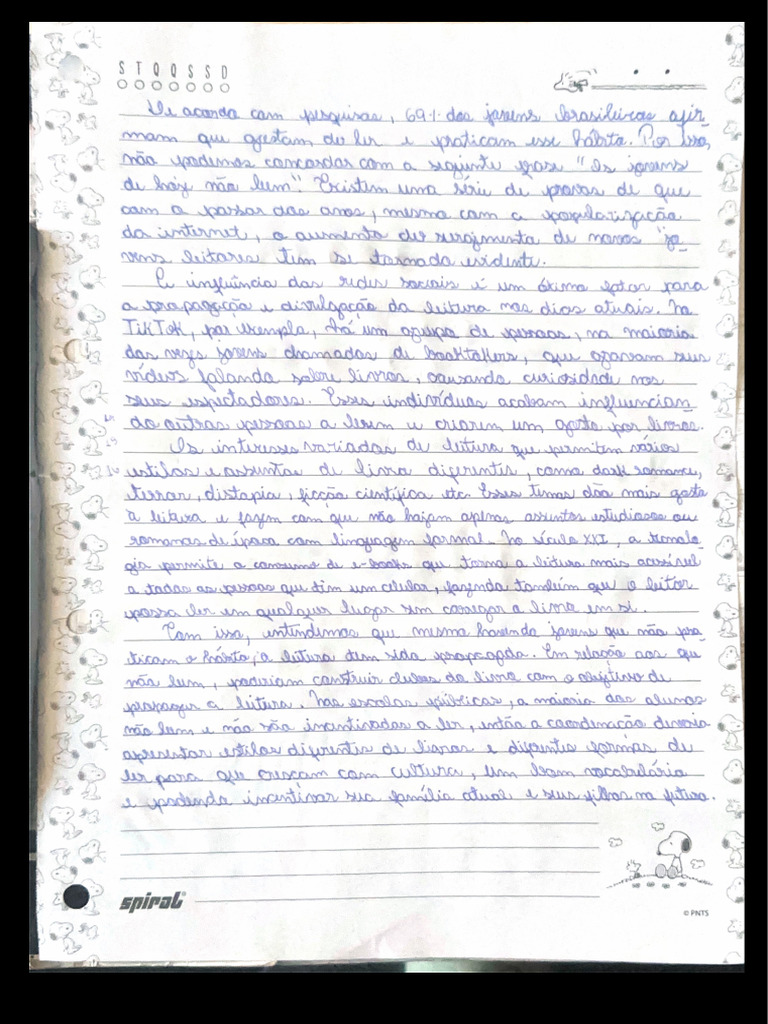 S T Q Q S S D
De acordo com pesquisas, 69% dos jovens brasileiros afir-
mam que gostam de ler e praticam esse hábito. Por isso,
não podemos concordar com a seguinte frase "Os jovens
de hoje não lem". Existem uma série de provas de que
com o passar dos anos, mesmo com a popularização
da internet, o aumento do surgimento de novos "jo-
vens leitores tem se tornado evidente.
A influência das redes sociais é um ótimo fator para
a propagação e divulgação da leitura nos dias atuais. No
TikTok, por exemplo, há um grupo de pessoas, na maioria
das vezes jovens chamados de booktokers, que gravam seus
vídeos falando sobre livros, causando curiosidade nos
seus espectadores. Esses indivíduos acabam influencian-
do outras pessoas a lerem e criarem um gosto por livros.
Os interesses variados de leitura que permitem vários
estilos e assuntos de livro diferentes, como dark romance,
terror, distopia, ficção científica etc. Esses temas dão mais gosto
à leitura e fazem com que não hajam apenas assuntos estudiosos ou
romances de época com linguagem formal. No século XXI, a tecnolo-
gia permite o consumo de e-books que torna a leitura mais acessível
a todas as pessoas que têm um celular, fazendo também que o leitor
possa ler em qualquer lugar sem carregar o livro em si.
Com isso, entendemos que mesmo havendo jovens que não pra-
ticam o hábito, a leitura tem sido propagada. Em relação aos que
não lem, poderiam construir clubes do livro com o objetivo de
propagar a leitura. Nas escolas públicas, a maioria dos alunos
não lem e não são incentivados a ler, então a coordenação deveria
apresentar estilos diferentes de livros e diferentes formas de
ler para que cresçam com cultura, um bom vocabulário
e podendo incentivar sua família atual e seus filhos no futuro.
spiral®
© PNTS